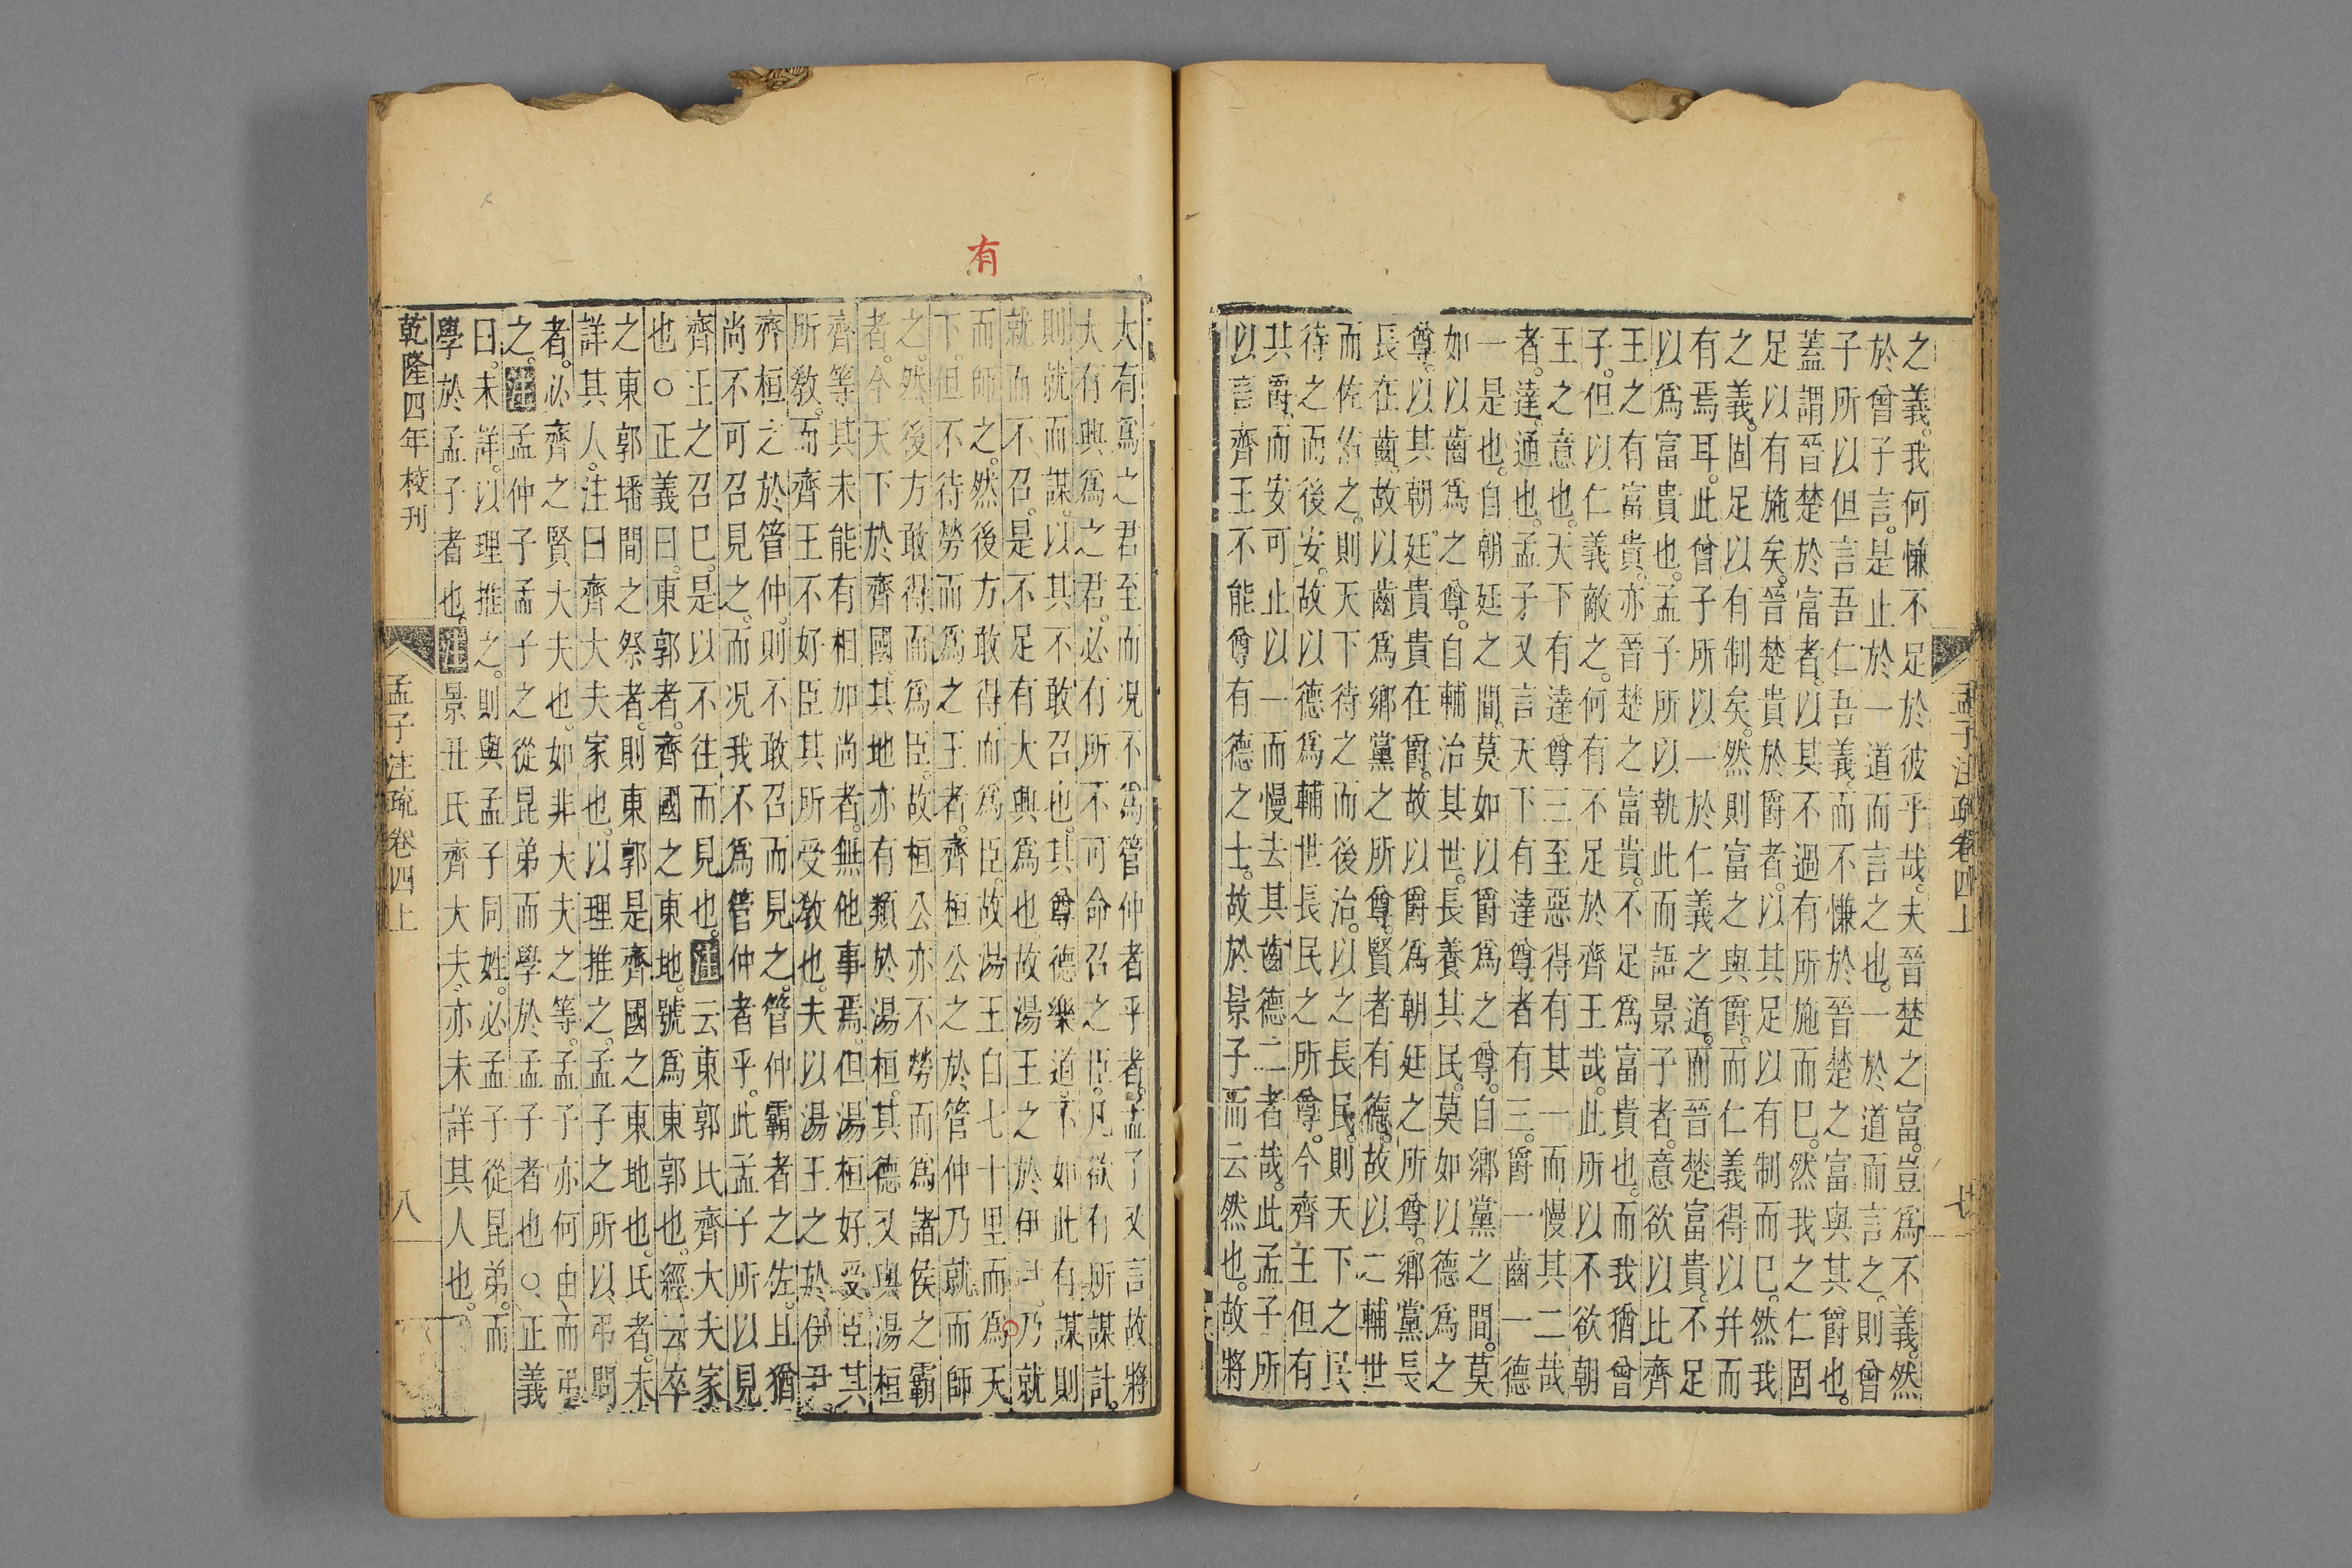 之義。我何慊不足於彼乎哉。夫晉楚之富。豈爲不義。然
於曾子言。是止於一道而言之也。一於道而言之。則曾
子所以但言吾仁吾義。而不慊於晉楚之富與其爵也。
蓋謂晉楚於富者。以其不過有所施而已。然我之仁固
足以有施矣。晉楚貴於爵者。以其足以有制而已。然我
之義。固足以有制矣。然則富之與爵。而仁義得以并而
有焉耳。此曾子所以一於仁義之道。而晉楚富貴。不足
以爲富貴也。孟子所以執此而語景子者。意欲以比齊
王之有富貴。亦晉楚之富貴。不足爲富貴也。而我猶曾
子。但以仁義敵之。何有不足於齊王哉。此所以不欲朝
王之意也。天下有達尊三至惡得有其一而慢其二哉
者。達。通也。孟子又言天下有達尊者有三。爵一齒一德
一是也。自朝廷之間。莫如以爵爲之尊。自鄉黨之間。莫
如以齒爲之尊。自輔治其世。長養其民。莫如以德爲之
尊。以其朝廷貴貴在爵。故以爵爲朝廷之所尊。鄉黨長
長在齒。故以齒爲鄉黨之所尊。賢者有德。故以之輔世
而佐佑之。則天下待之而後治。以之長民。則天下之民
待之而後安。故以德爲輔世長民之所尊。今齊王但有
其爵。而安可止以一而慢去其齒德二者哉。此孟子所
以言齊王不能尊有德之士。故於景子而云然也。故將
孟子注疏卷四上
七
有
大有爲之君至而況不爲管仲者乎者。孟子又言故將
大有興爲之君。必有所不可命召之臣。凡欲有所謀計。
則就而謀。以其不敢召也。其尊德樂道。不如此有謀則
就而不召。是不足有大興爲也。故湯王之於伊尹。乃就
而師之。然後方敢得而爲臣。故湯王自七十里而爲天
下。但不待勞而爲之王者。齊桓公之於管仲。乃就而師
之。然後方敢得而爲臣。故桓公亦不勞而爲諸侯之霸
者。今天下於齊國。其地亦有類於湯桓。其德又與湯桓
齊等。其未能有相加尚者。無他事焉。但湯桓好受臣其
所敎。而齊王不好臣其所受敎也。夫以湯王之於伊尹。
齊桓之於管仲。則不敢召而見之。管仲霸者之佐。且猶
尚不可召見之。而況我不爲管仲者乎。此孟子所以見
齊王之召已。是以不往而見也。注云東郭氏齊大夫家
也○正義曰。東郭者。齊國之東地。號爲東郭也。經云卒
之東郭墦間之祭者。則東郭是齊國之東地也。氏者。未
詳其人。注曰齊大夫家也。以理推之。孟子之所以弔問
者。必齊之賢大夫也。如非大夫之等。孟子亦何由而弔
之。注孟仲子孟子之從昆弟而學於孟子者也○正義
曰。未詳。以理推之。則與孟子同姓。必孟子從昆弟。而
學於孟子者也。注景丑氏齊大夫。亦未詳其人也。
乾隆四年校刊
孟子注疏卷四上
八